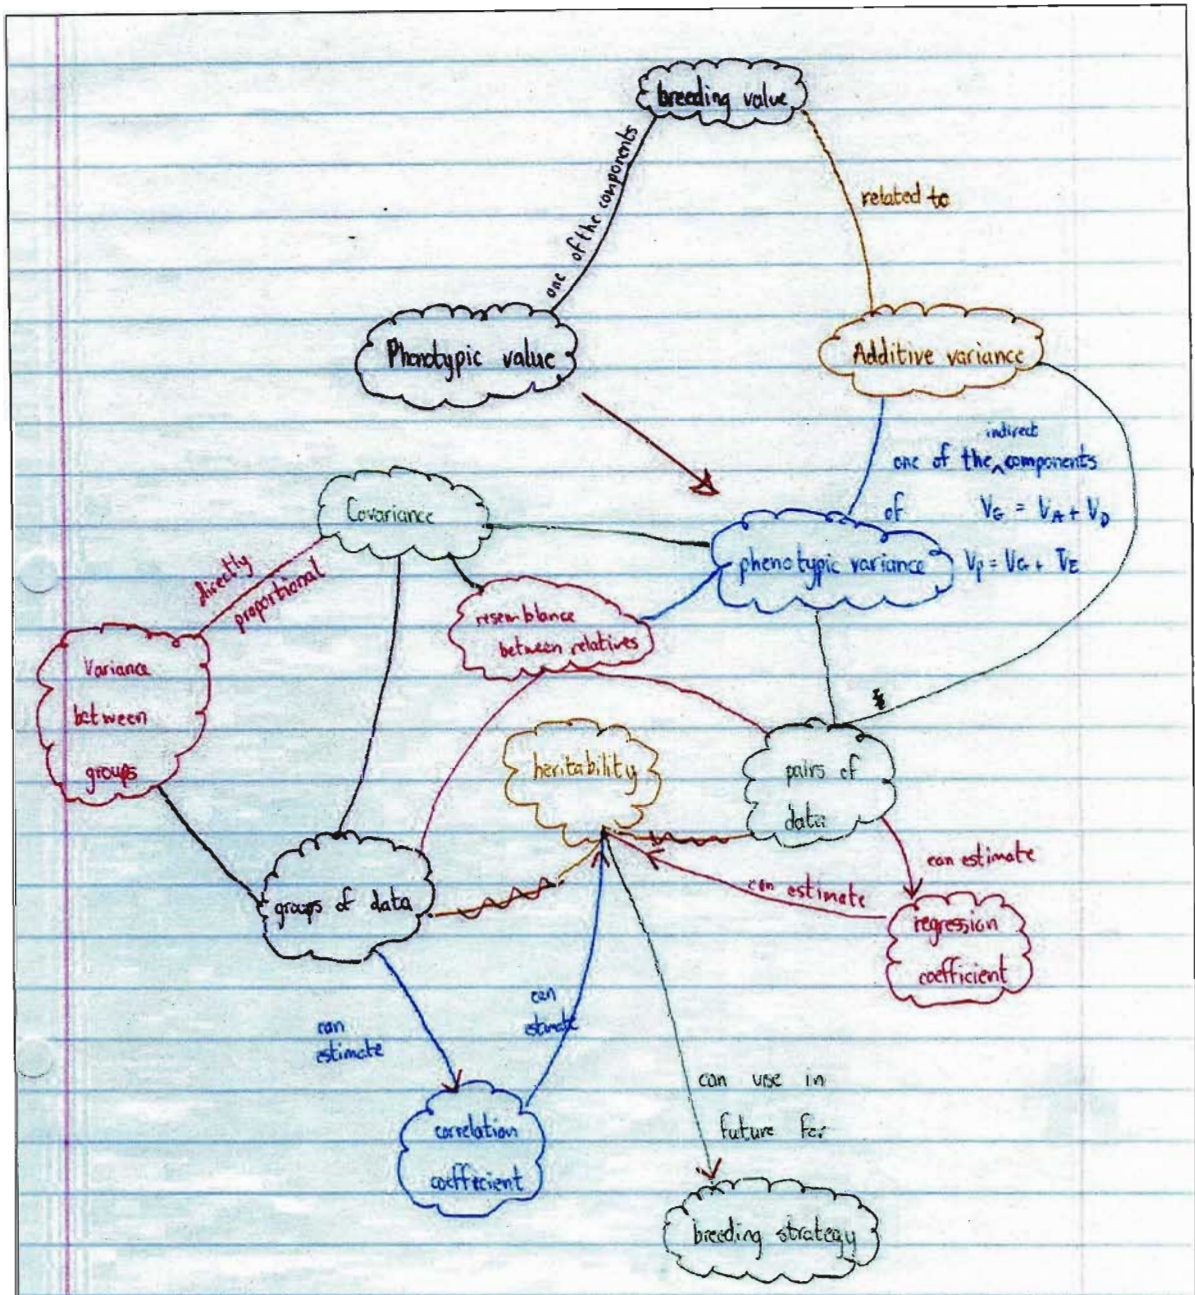 breeding value
one of the components
related to
Phenotypic value
Additive variance
indirect
one of the ^ components
of V_G = V_A + V_D
V_P = V_G + V_E
Covariance
phenotypic variance
directly
proportional
resemblance
between relatives
Variance
between
groups
heritability
pairs of
data
groups of data
can estimate
can estimate
regression
coefficient
can
estimate
can
estimate
correlation
coefficient
can use in
future for
breeding strategy